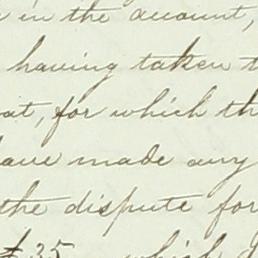 in the account,
having taken
for which th
have made any
the dispute for
35 which